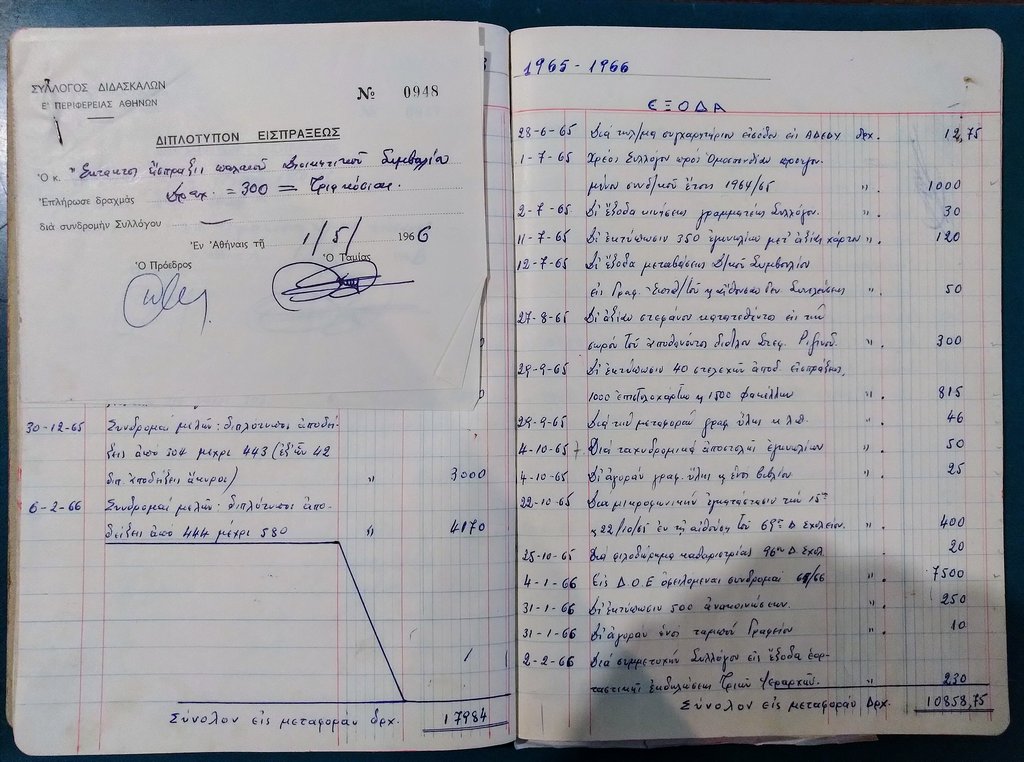 ΣΥΛΛΟΓΟΣ ΔΙΔΑΣΚΑΛΩΝ
Ε' ΠΕΡΙΦΕΡΕΙΑΣ ΑΘΗΝΩΝ
№ 0948
ΔΙΠΛΟΤΥΠΟΝ ΕΙΣΠΡΑΞΕΩΣ
Ὁ κ. Ἔκτακτος εἴσπραξις παλαιοῦ Διοικητικοῦ Συμβουλίου
Ἐπλήρωσε δραχμὰς Δραχ. = 300 = Τριακόσιας.
διὰ συνδρομὴν Συλλόγου —
Ἐν Ἀθήναις τῇ 1/5/ 1966
Ὁ Πρόεδρος Ὁ Ταμίας
30-12-65 Συνδρομαὶ μελῶν: διπλότυποι ἀποδεί
ξεις ἀπὸ 304 μέχρι 443 (ἐξ ὧν 42
διπ. ἀποδείξεις ἄκυροι) " 3000
6-2-66 Συνδρομαὶ μελῶν: διπλότυποι ἀπο-
δείξεις ἀπὸ 444 μέχρι 580 " 4170
Σύνολον εἰς μεταφορὰν δρχ. 17984
1965 - 1966
ΕΞΟΔΑ
28-6-65 Διὰ τηλ/μα συγχαρητήριον εἰσόδου εἰς ΑΔΕΔΥ δρχ. 12,75
1-7-65 Χρέος Συλλόγου πρὸς Ὁμοσπονδίαν προηγου.
μένου συνδ/κοῦ ἔτους 1964/65 " 1000
2-7-65 Δι' ἔξοδα κινήσεως γραμματέως Συλλόγου. " 30
11-7-65 Δι' ἐκτύπωσιν 350 ἐγκυκλίων μετ' ἀξίας χάρτου " 120
12-7-65 Δι' ἔξοδα μεταβάσεως Δ/κοῦ Συμβουλίου
εἰς Γραφ. " 50
27-8-65 Δι' ἀξίαν στεφάνου κατατεθέντος εἰς τὴν
σορὸν τοῦ ἀποθανόντος διδ/λου Στεφ. " 300
29-9-65 Δι' ἐκτύπωσιν 40 στελεχῶν ἀποδ. εἰσπράξεως,
1000 ἐπιστολοχάρτων κ 1500 φακέλλων " 815
29-9-65 Διὰ τὴν μεταφορὰν γραφ. ὕλης κ.λ.π. " 46
4-10-65 Διὰ ταχυδρομικὰ ἀποστολῆς ἐγκυκλίων " 50
4-10-65 Δι' ἀγορὰν γραφ. ὕλης κ ἑνὸς βιβλίου " 25
22-10-65 Διὰ μικροφωνικὴν ἐγκατάστασιν τὴν 15ην
κ 22/10/65 ἐν τῇ αἰθούσῃ τοῦ Δ Σχολείου. " 400
25-10-65 Διὰ φιλοδώρημα καθαριστρίας 96ου Δ. Σχολ. " 20
4-1-66 Εἰς Δ.Ο.Ε ὀφειλόμεναι συνδρομαὶ 65/66 " 7500
31-1-66 Δι' ἐκτύπωσιν 500 ἀνακοινώσεων. " 250
31-1-66 Δι' ἀγορὰν ἑνὸς ταμπὸν Γραφείου " 10
2-2-66 Διὰ συμμετοχὴν Συλλόγου εἰς ἔξοδα ἑορ-
ταστικῆς ἐκδηλώσεως Τριῶν Ἱεραρχῶν. " 230
Σύνολον εἰς μεταφορὰν Δρχ. 10858,75